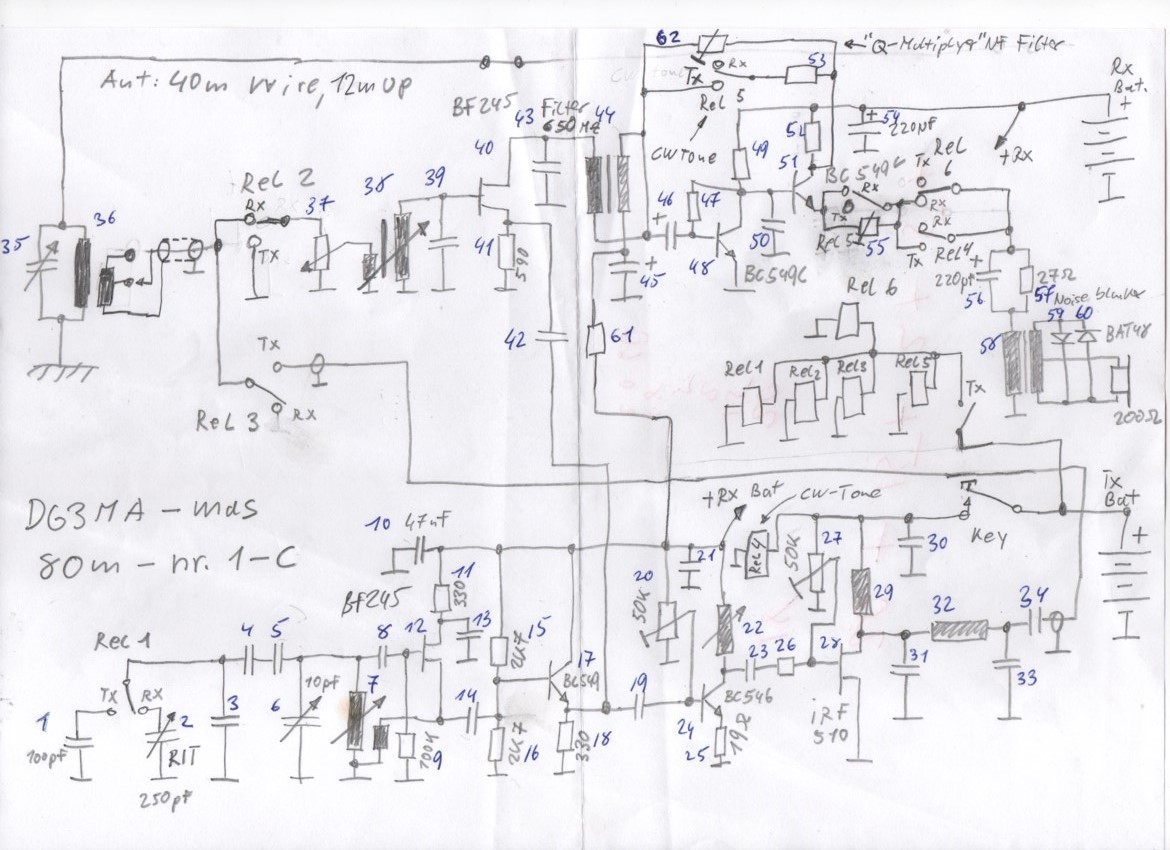 62
"Q-Multiplyer" NF Filter
CW Tone
Rx
Tx
53
Rel 5
Rx
Bat.
+
Ant: 40m wire, 12m up
BF245
43
Filter
650 Hz
44
CW Tone
54
+
220µF
52
+Rx
40
49
51
BC549C
Tx
Rel
6
Rx
Rel 2
Rx
37
38
39
46
+
47
Rx
Tx
Rel 5
55
Rx
Tx
Rel 4
35
36
Tx
41
590
48
50
BC549C
45
+
+
220µF
56
27Ω
57
Noise blanker
59
60
BAT48
58
200Ω
Rel 6
42
61
Tx
Rel 3
Rx
Rel 1
Rel 2
Rel 3
Rel 5
Tx
DG3MA - mds
80m - nr. 1-C
+Rx Bat
CW-Tone
Key
Tx
Bat
+
10
47nF
Rel 4
50K
27
30
21
BF245
11
330
20
50K
29
32
34
Rel 1
4
5
8
12
13
15
2K7
17
BC549
22
23
26
28
31
33
10pF
7
14
19
BC546
iRF
510
Tx
Rx
1
100pF
2
RIT
250pF
3
6
100K
9
2K7
16
330
18
24
25
19Ω